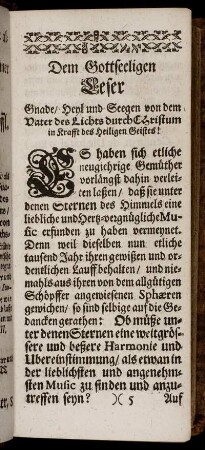 Dem Gottseeligen
Leser
Gnade/ Heyl und Seegen von dem
Vater des Lichts durch CHristum
in Krafft des Heiligen Geistes!
ES haben sich etliche
neugichrige Gemüther
vorlängst dahin verlei-
ten laßen/ daß sie unter
denen Sternen des Himmels eine
liebliche und Hertz-vergnügliche Mu-
sic erfunden zu haben vermeynet.
Denn weil dieselben nun etliche
tausend Jahr ihren gewißen und or-
dentlichen Lauff behalten/ und nie-
mahls aus ihren von dem allgütigen
Schöpffer angewiesenen Sphæren
gewichen/ so sind selbige auf die Ge-
dancken gerathen: Ob müße un-
ter denen Sternen eine weltgrös-
sere und beßere Harmonie und
Ubereinstimmung/ als etwan in
der lieblichsten und angenehm-
sten Music zu finden und anzu-
treffen seyn?
)( 5 Auf